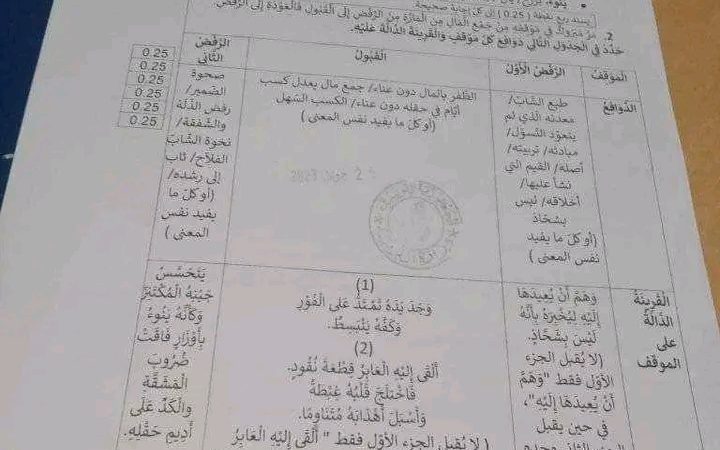 يسند ربع نقطة ( 0.25 ) إلى كل إجابة صحيحة
2. مرّ مَبْرُوكٌ في مَوْقِفِهِ مِنْ جَمْعِ المَالِ مِنَ المَارَّةِ مِنَ الرَّفْضِ إِلَى القَبُولِ فَالعَوْدَةِ إِلَى الرَّفْضِ.
حَدِّدْ فِي الجَدْوَلِ التَّالِي دَوَافِعَ كُلِّ مَوْقِفٍ وَالقَرِينَةَ الدَّالَّةَ عَلَيْهِ.
المَوْقِفُ
الرَّفْضُ الأَوَّلُ
القَبُولُ
الرَّفْضُ
الثَّانِي
الدَّوَافِعُ
طبع الشّابّ/
معدنه الّذي لم
يتعوّد التّسوّل/
مبادئه/ تربيته/
أصله/ القيم الّتي
نشأ عليها/
أخلاقه/ ليس
بشحّاذ
(أو كلّ ما يفيد
نفس المعنى )
الظّفر بالمال دون عناء/ جمع مال يعدل كسب
أيّام في حقله دون عناء/ الكسب السّهل
(أو كلّ ما يفيد نفس المعنى )
صحوة
الضّمير/
رفض الذّلّة
والشّفقة/
نخوة الشّابّ
الفلّاح/ ثاب
إلى رشده/
(أو كلّ ما
يفيد نفس
المعنى )
0.25
0.25
0.25
0.25
0.25
2023
القَرِينَةُ
الدَّالَّةُ
على
الموقف
وَهَمَّ أَنْ يُعِيدَهَا
إِلَيْهِ لِيُخْبِرَهُ بِأَنَّهُ
لَيْسَ بِشَحَّاذٍ.
(لا يُقبل الجزء
الأوّل فقط "وَهَمَّ
أَنْ يُعِيدَهَا إِلَيْهِ"،
في حين يقبل
(1)
وَجَدَ يَدَهُ تَمْتَدُّ عَلَى الفَوْرِ
وَكَفَّهُ يَنْبَسِطُ.
(2)
أَلْقَى إِلَيْهِ العَابِرُ قِطْعَةَ نُقُودٍ.
فَاخْتَلَجَ قَلْبُهُ غِبْطَةً
وَأَسْبَلَ أَهْدَابَهُ مُتَنَاوِمًا.
( لا يُقبل الجزء الأوّل فقط " أَلْقَى إِلَيْهِ العَابِرُ
يَتَحَسَّسُ
جَيْبَهُ المُكْتَنِزَ
وَكَأَنَّهُ يَنُوءُ
بِأَوْزَارٍ فَاقَتْ
ضُرُوبَ
المَشَقَّةِ
وَالكَدِّ عَلَى
أَدِيمِ حَقْلِهِ.